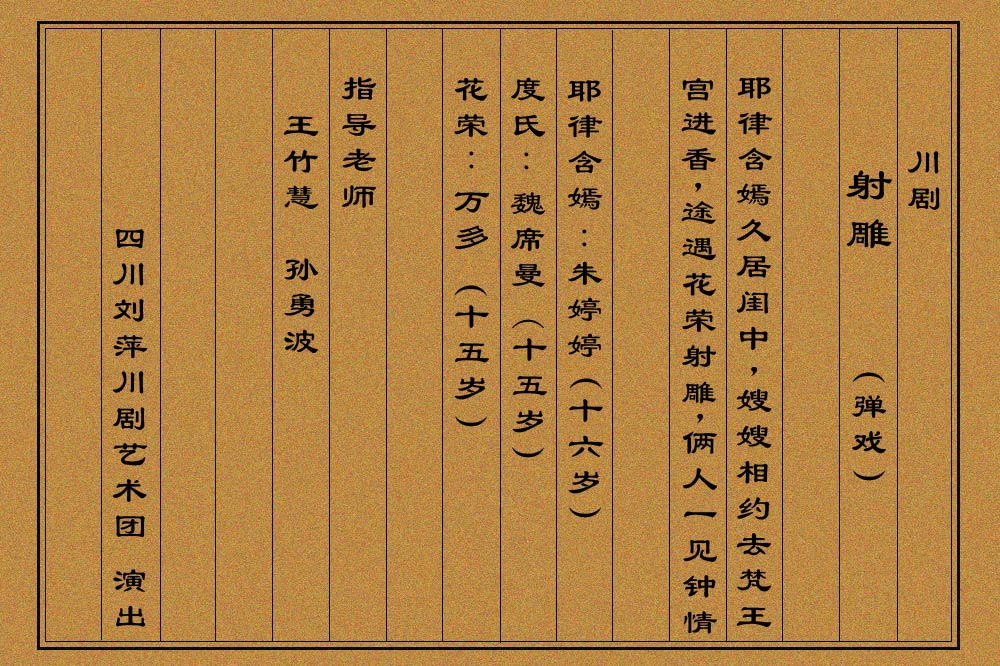 川剧
射雕 （弹戏）
耶律含嫣久居闺中，嫂嫂相约去梵王
宫进香，途遇花荣射雕，俩人一见钟情
耶律含嫣：朱婷婷（十六岁）
度氏：魏席曼（十五岁）
花荣：万多（十五岁）
指导老师
王竹慧 孙勇波
四川刘萍川剧艺术团 演出